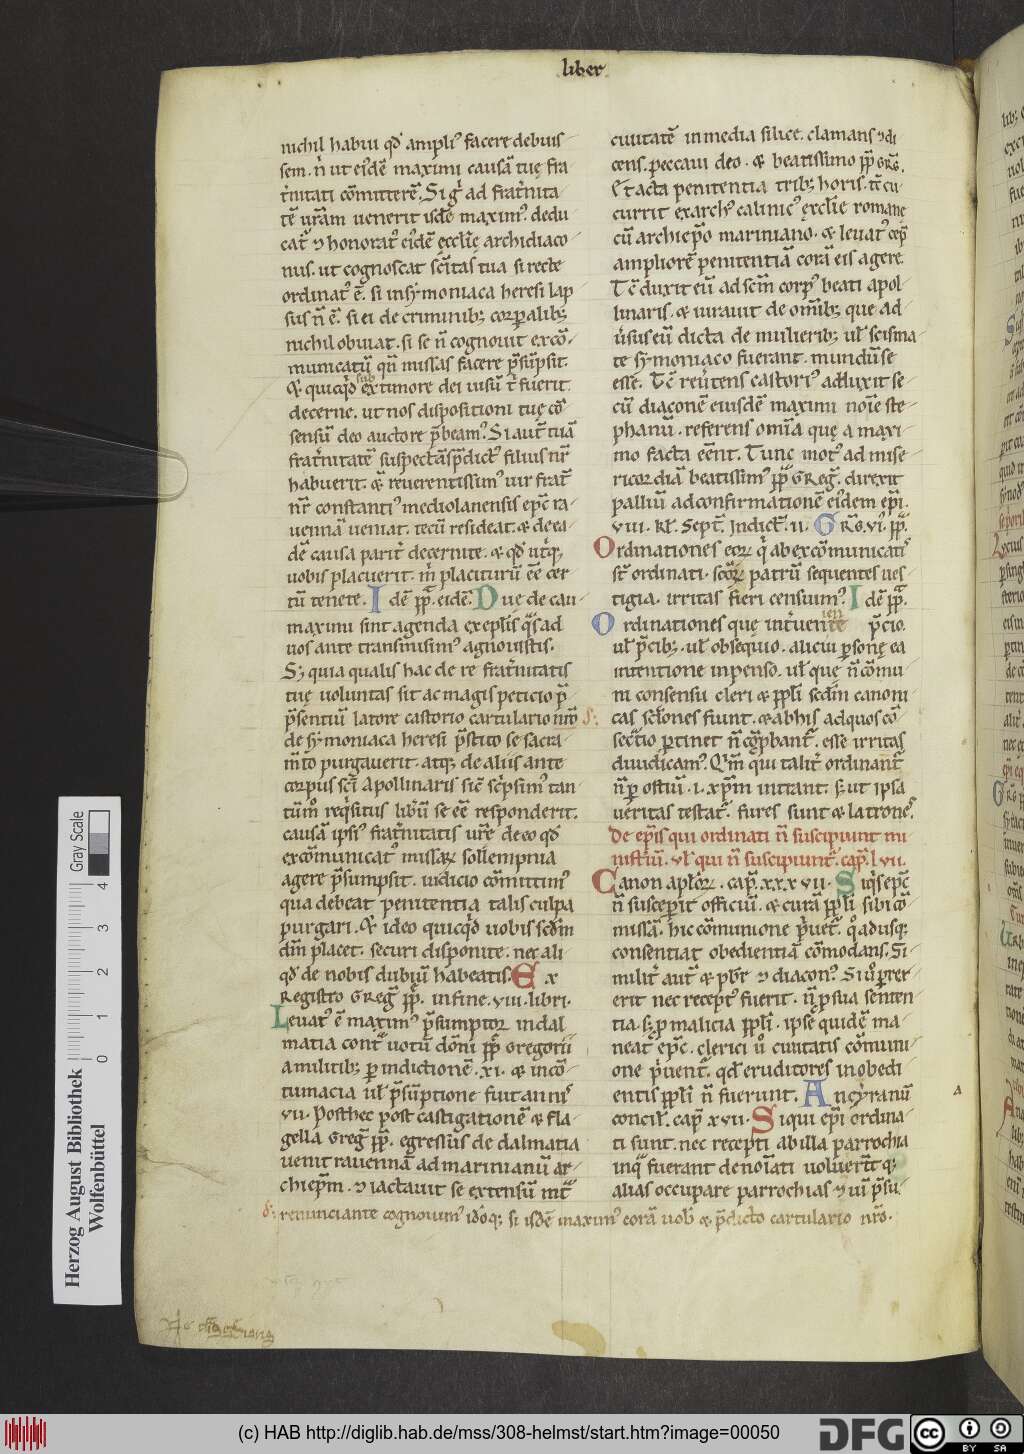 liber
nichil habui qd̄ ampliꝰ facere debuis
sem. n̄ ut eidē maximi causā tuę fra
t̄nitati cōmitterē. Si g̊ ad frat̄nita
tē ur̄am uenerit isdē maximꝰ. dedu
cat᷑ ⁊ honoratꝰ eidē ęcclię archidiaco
nus. ut cognoscat sc̄itas tua si recte
ordinatꝰ ē. si in symoniaca heresi lap
sus n̄ ē. si ei de criminib; corꝑalib;
nichil obuiat. si se n̄ cognouit excō
municatū qn̄ missas facere p̄sūpsit.
Et quicqd̄ sub timore dei uisū t̄ fuerit
decerne. ut nos dispositioni tuę cō
sensū deo auctore p̄beamꝰ. Si aut̄ tuā
frat̄nitatē suspectā p̄dictꝰ filius nr̄
habuerit. & reuerentissimꝰ uir frat̄
nr̄ constantiꝰ mediolanensis epc̄ ra
uennā ueniat. tecū resideat. & de ea
dē causa parit̄ decernite. & qd̄ ut̄q;
uobis placuerit. m̄ placiturū eē cer
tū tenete. Idē pp̄. eidē. Due de cau
maximi sint agenda exeplis q̄s ad
uos ante transmisimꝰ agnouistis.
S; quia qualis hac de re frat̄nitatis
tuę uoluntas sit ac magis peticio p̄
p̄sentiū latore castorio cartulario nr̄o
de symoniaca heresi p̄stito se sacra
m̄to purgauerit. atq; de aliis ante
corpus sc̄i Apollinaris sic̄ sc̄psimꝰ tan
tūm̊ reqisitus lib̄ū se eē responderit.
causā ipsiꝰ frat̄nitatis ur̄e deco qd̄
excōmunicatꝰ missaꝝ sollempnia
agere p̄sumpsit. iudicio cōmittimꝰ
qua debeat penitentia talis culpa
purgari. Et ideo quicqd̄ uobis sedm̄
dm̄ placet. securi disponite. nec ali
qd̄ de nobis dubiū habeatis. Ex
Registro Greg̊ pp̄. in fine. viii. libri.
Leuatꝰ ē maximꝰ p̄sumptor in dal
matia cont̄ uotū dōni pp̄ Gregorii
a militib; ꝑ indictionē. xi. & incō
tumacia ul̄ p̄sūptione fuit annis
vii. Posthec post castigationē & fla
gella Greg̊ pp̄. egressus de dalmatia
uenit rauennā ad marinianū ar
chiepm̄. ⁊ iactauit se extensū int̄
renunciante cognouimꝰ idoq; si isdē maximꝰ corā uob̄ & p̄dicto cartulario nr̄o.
ciuitatē in media silice. clamans ⁊ di
cens. peccaui deo. & beatissimo pp̄ GRG̊.
Et acta penitentia trib; horis. tc̄ cu
currit exarchꝰ calinicꝰ ęcclię romanę
cū archiepo mariniano. & leuatꝰ cep̄
ampliorē penitentiā corā eis agere.
Tc̄ duxit eū ad scm̄ corpꝰ beati apol
linaris. & iurauit de om̄ib; que ad
ūsus eū dicta de mulierib; ul̄ scisma
te symoniaco fuerant. mundū se
esse. Tc̄ reūtens castoriꝰ adduxit se
cū diaconē eiusdē maximi noīe ste
phanū. referens om̄ia quę a maxi
mo facta eēnt. Tunc motꝰ ad mise
ricordiā beatissimꝰ pp̄ GReg̊. direxit
palliū ad confirmationē eidem epi.
viii. kl. Sept̄. Indict̄. ii. GR̄G. vi. pp̄.
Ordinationes eoꝝ q̄ ab excōmunicatis
st̄ ordinati. sc̄oꝝ patrū sequentes ues
tigia. irritas fieri censuimꝰ. Idē pp̄.
Ordinationes quę int̄ueniente p̄cio.
ul̄ p̄cib;. ul̄ obsequio. alicui ꝑsonę ea
intentione inpenso. ul̄ quę n̄ cōmu
ni consensu cleri & pp̄li sedm̄ canoni
cas sc̄iones fiunt. & ab his ad quos cō
secr̄tio ꝑtinet n̄ cōp̄bant᷑. esse irritas
diiudicamꝰ. Qm̄ qui talit̄ ordinant᷑
n̄ ꝑ ostiū. i. xpm̄ intrant. s; ut ipsa
ueritas testat᷑. fures sunt & latrones.
De epis qui ordinati n̄ suscipiunt mi
nist̄iū. ul̄ qui n̄ suscipiunt᷑. cap̄. lvii.
Canon aplōꝝ. cap̄. xxxvii. Siqis epc̄
n̄ susceperit officiū. & curā pp̄li sibi cō
missā. hic cōmunione p̄uet᷑. q̊adusq;
consentiat obedientiā cōmodans. Si
milit̄ aut̄ & pbr̄ ⁊ diaconꝰ. Si ū̊ ꝑrer
erit nec receptꝰ fuerit. n̄ ꝑ sua senten
tia. s; ꝑ malicia pp̄li. ipse quidē ma
neat epc̄. clerici ū̊ ciuitatis cōmuni
one p̄uent᷑. qd̄ eruditores inobedi
entis pp̄li n̄ fuerunt. Ancyranū
concil̄. cap̄ xvii. Siqui epi ordina
ti sunt. nec recepti ab illa parrochia
inq̄ fuerant denoīati uoluerīt q;
alias occupare parrochias ⁊ ui p̄su
Herzog August Bibliothek
Wolfenbüttel
Gray Scale
0 1 2 3 4
(c) HAB http://diglib.hab.de/mss/308-helmst/start.htm?image=00050
DFG
cc BY SA